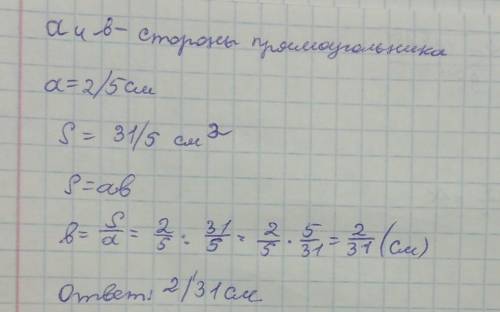 a и b - стороны прямоугольника
a = 2/5 см
S = 31/5 см²
S = ab
b = S/a = 2/5 : 31/5 = 2/5 · 5/31 = 2/31 (см)
Ответ: 2/31 см